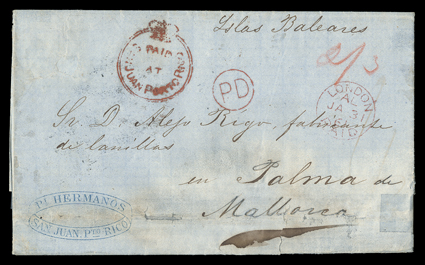 Islas Baleares
2/3
PAID
AT
SAN JUAN PORTO RICO
PD
LONDON
Sr. D. Alejo Rigo, fabricante
de lanillas
en Palma de
Mallorca
PI. HERMANOS
SAN JUAN, Pto RICO